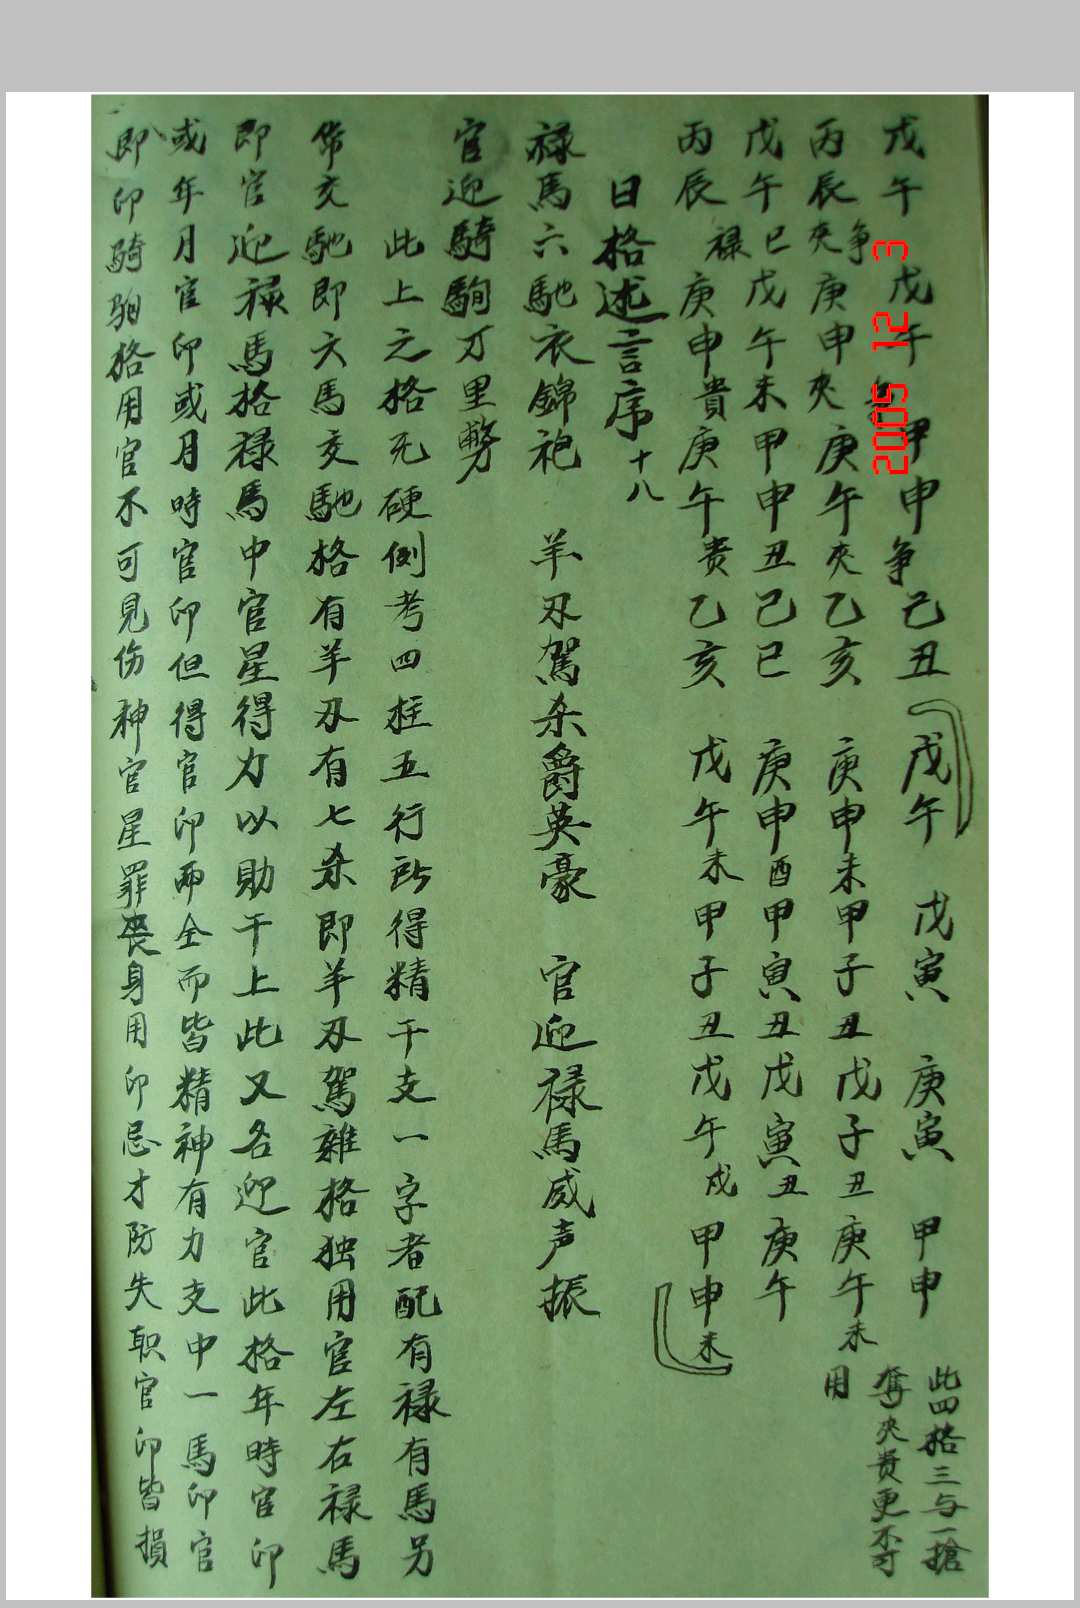 戊午 戊午 甲申争己丑 戊午 戊寅 庚寅 甲申 此四格三与一搶
丙辰夾争庚申夾庚午夾乙亥 庚申未甲子丑戊子丑庚午未 奪夾貴更不可用
戊午巳戊午未甲申丑己巳 庚申酉甲寅丑戊寅丑庚午
丙辰禄庚申貴庚午贵乙亥 戊午未甲子丑戊午戍甲申未
日格述言序十八
禄馬六馳衣錦袍 羊刃駕杀爵英豪 官迎禄馬威声振
官迎騎駒才里剺
此上之格无硬例考四柱五行所得精干支一字者配有禄有馬另
作交馳即六馬交馳格有羊刃有七杀即羊刃駕雜格独用官左右禄馬
即官迎禄馬格禄馬中官星得力以助干上此又名迎官此格年時官印
或年月官印或月時官印但得官印両全而皆精神有力支中一馬印官
即印騎駒格用官不可見伤神官星罪丧身用印忌才防失职官印皆損
2005 12 3